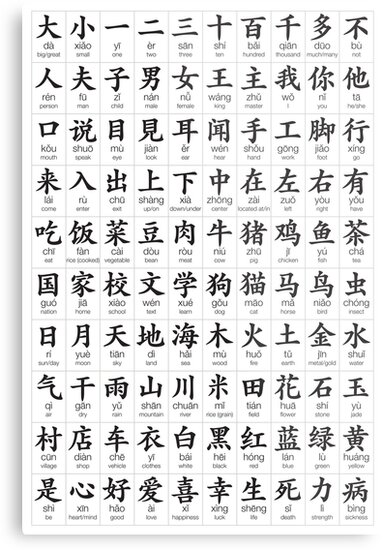 大 小 一 二 三 十 百 千 多 不
dà xiǎo yī èr sān shí bǎi qiān duō bù
big/great small one two three ten hundred thousand much/many not
人 夫 子 男 女 王 主 我 你 他
rén fū zǐ nán nǚ wáng zhǔ wǒ nǐ tā
person man child male female king master I you he/she
口 说 目 見 耳 闻 手 工 脚 行
kǒu shuō mù jiàn ěr wén shǒu gōng jiǎo xíng
mouth speak eye look ear hear hand work foot go
来 入 出 上 下 中 在 左 右 有
lái rù chū shàng xià zhōng zài zuǒ yòu yǒu
come enter exit up/on down/under center located at/in left right have
吃 饭 菜 豆 肉 牛 猪 鸡 鱼 茶
chī fàn cài dòu ròu niú zhū jī yú chá
eat rice (cooked) vegetable bean meat cow pig chicken fish tea
国 家 校 文 学 狗 猫 马 鸟 虫
guó jiā xiào wén xué gǒu māo mǎ niǎo chóng
nation home school text learn dog cat horse bird insect
日 月 天 地 海 木 火 土 金 水
rí yuè tiān dì hǎi mù huǒ tǔ jīn shuǐ
sun/day moon sky land sea wood fire earth metal/gold water
气 干 雨 山 川 米 田 花 石 玉
qì gān yǔ shān chuān mǐ tián huā shí yù
air dry rain mountain river rice (grain) field flower stone jade
村 店 车 衣 白 黑 红 蓝 绿 黄
cūn diàn chē yī bái hēi hóng lán lǜ huáng
village shop vehicle clothes white black red blue green yellow
是 心 好 爱 喜 幸 生 死 力 病
shì xīn hǎo ài xǐ xìng shēng sǐ lì bìng
be heart/mind good love happiness luck life death strength sickness